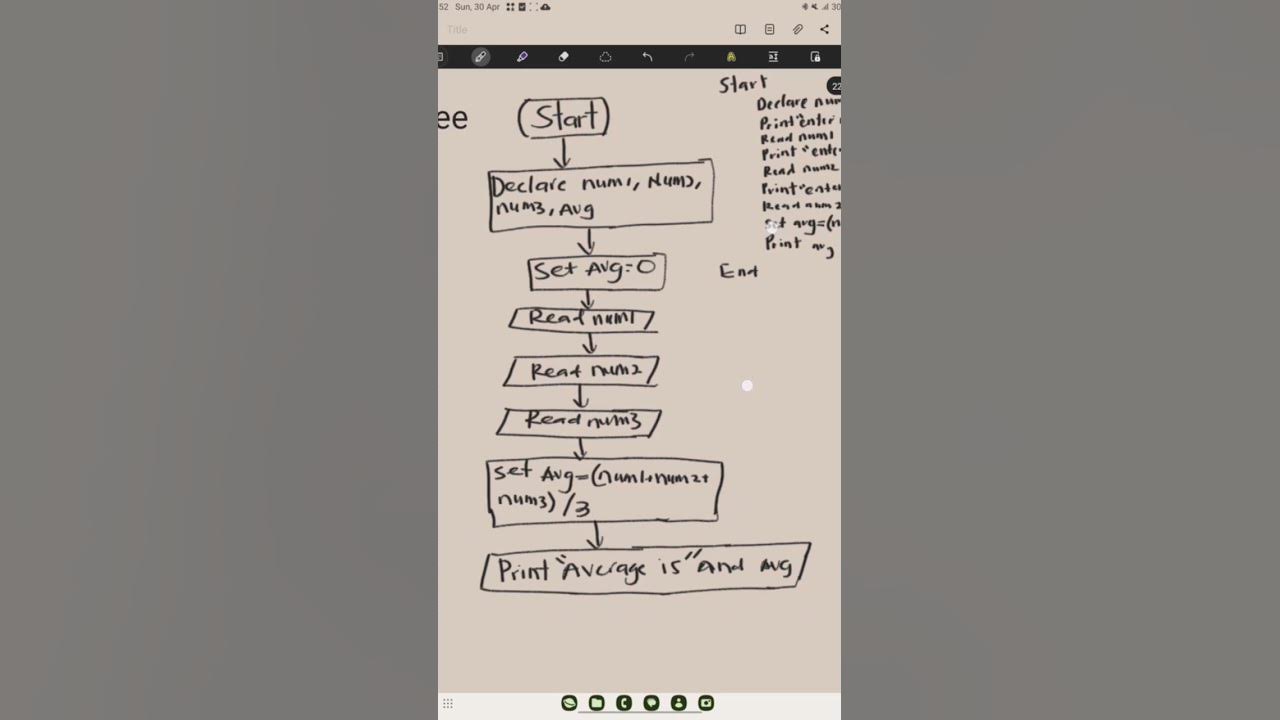 52 Sun, 30 Apr
30
Title
22
ee
Start
Declare num1, Num2,
num3, Avg
Set Avg=0
Read num1
Read num2
Read num3
set Avg=(num1+num2+
num3)/3
Print "Average is" And Avg
Start
Declare num
Print "enter
Read num1
Print "ente
Read num2
Print "enter
Read num
set avg=(n
Print avg
End